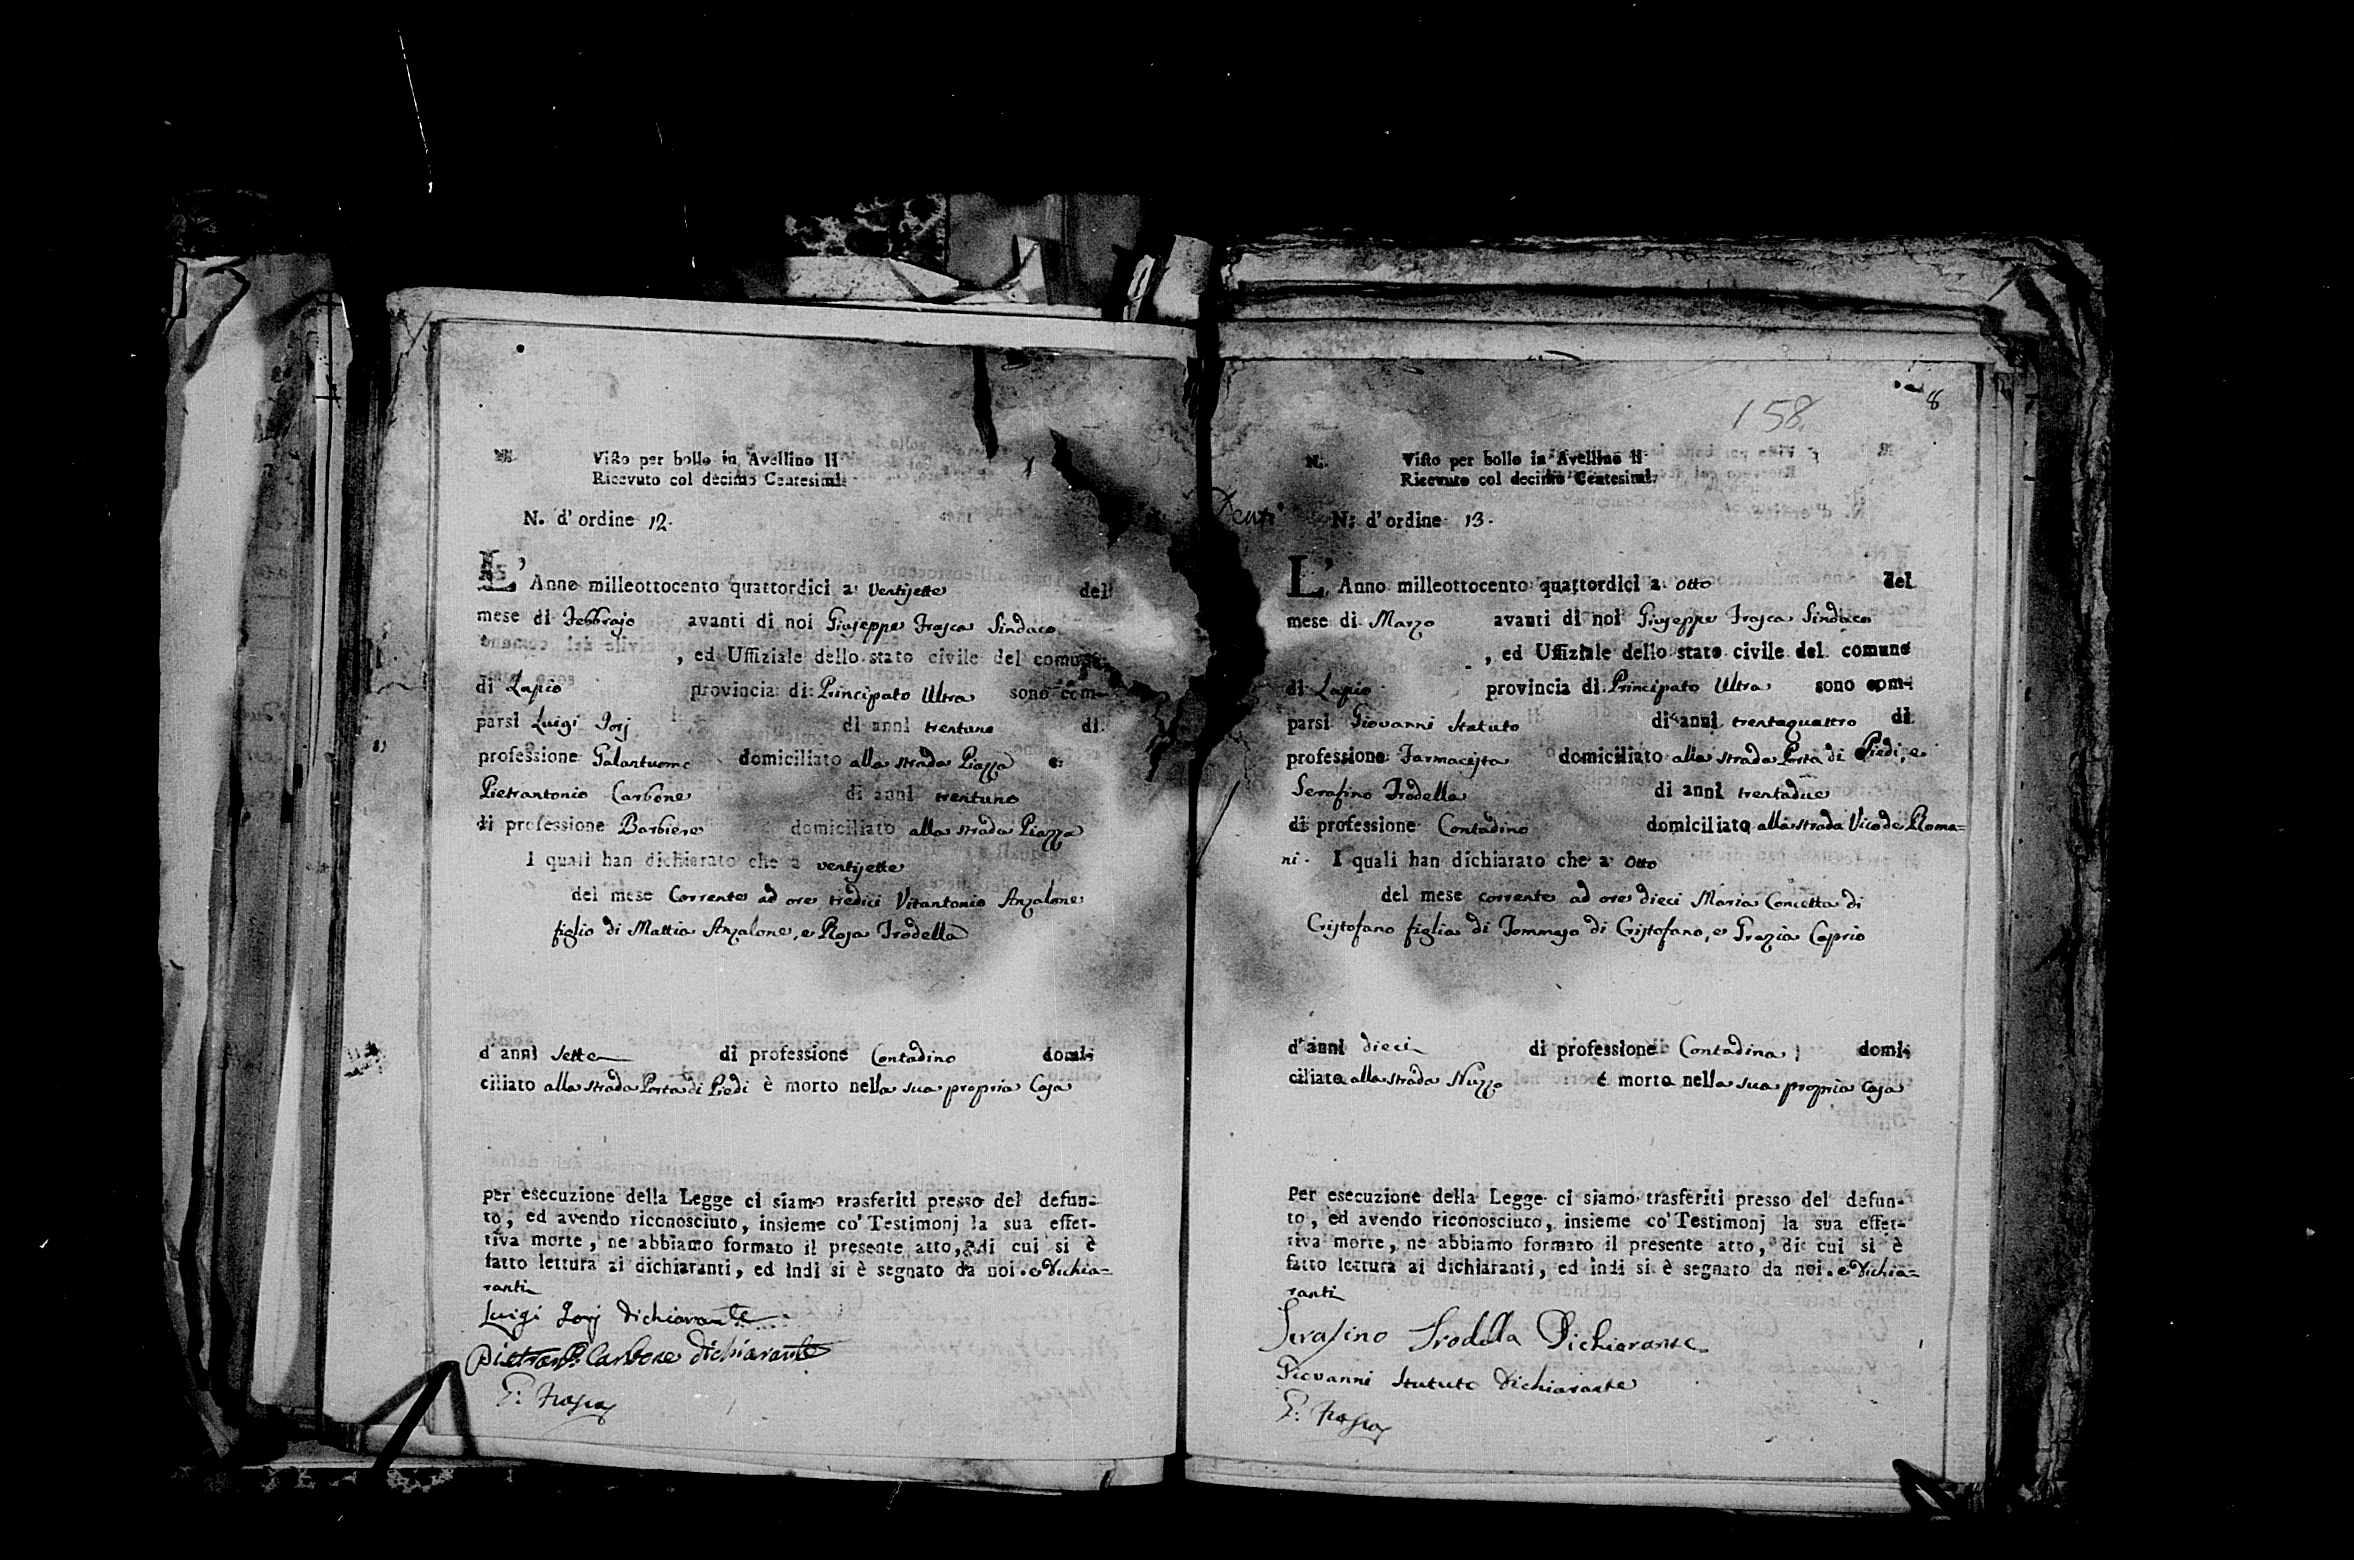 N.
Visto per bollo in Avellino li
Ricevuto col decimo Centesimi
N. d'ordine 12.
L'Anno milleottocento quattordici a ventisette del
mese di Febbrajo avanti di noi Giuseppe Frasca Sindaco
, ed Uffiziale dello stato civile del comune
di Lapio provincia di Principato Ultra sono com-
parsi Luigi Jorj di anni trentuno di
professione Galantuomo domiciliato alla strada Piazza e
Pietrantonio Carbone di anni trentuno
di professione Barbiere domiciliato alla strada Piazza
I quali han dichiarato che a ventisette
del mese Corrente ad ore tredici Vitantonio Anzalone
figlio di Mattia Anzalone, e Rosa Trodella
d'anni sette di professione Contadino domi-
ciliato alla strada Porta di Piedi è morto nella sua propria Casa
Per esecuzione della Legge ci siamo trasferiti presso del defun-
to, ed avendo riconosciuto, insieme co' Testimonj la sua effet-
tiva morte, ne abbiamo formato il presente atto, di cui si è
fatto lettura ai dichiaranti, ed indi si è segnato da noi. e Dichia=
ranti
Luigi Jorj dichiarante
Pietrant. Carbone dichiarante
G: Frasca
158
8
N.
Visto per bollo in Avellino li
Ricevuto col decimo Centesimi
N. d'ordine 13.
L'Anno milleottocento quattordici a otto del
mese di Marzo avanti di noi Giuseppe Frasca Sindaco
, ed Uffiziale dello stato civile del comune
di Lapio provincia di Principato Ultra sono com-
parsi Giovanni Statuto di anni trentaquattro di
professione Farmacista domiciliato alla strada Porta di Piedi, e
Serafino Trodella di anni trentadue
di professione Contadino domiciliato alla strada Vico de Roma=
ni. I quali han dichiarato che a otto
del mese corrente ad ore dieci Maria Concetta di
Cristofano figlia di Tommaso di Cristofano, e Grazia Caprio
d'anni dieci di professione Contadina domi-
ciliata alla strada Nuzzo è morta nella sua propria Casa
Per esecuzione della Legge ci siamo trasferiti presso del defun-
to, ed avendo riconosciuto, insieme co' Testimonj la sua effet-
tiva morte, ne abbiamo formato il presente atto, di cui si è
fatto lettura ai dichiaranti, ed indi si è segnato da noi. e Dichia=
ranti
Serafino Trodella Dichiarante
Giovanni Statuto Dichiarante
G: Frasca